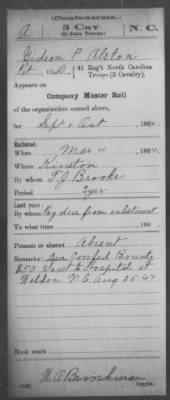 (Confederate.)
A 3 Cav. N. C.
(41 State Troops.)
Gideon P. Alston
Pvt, Co. , 41 Reg't North Carolina
Troops (3 Cavalry).
Appears on
Company Muster Roll
of the organization named above,
for Sept & Oct, 1864.
Enlisted:
When Mar , 1864.
Where Kinston
By whom T. J. Brooke
Period 3 yrs
Last paid:
By whom Pay due from enlistment
To what time , 186 .
Present or absent Absent
Remarks: Due Confed Bounty
$50 Sent to Hospital at
Weldon N. C. Aug 25 64
Book mark:
W. A. Brinkman
Copyist.